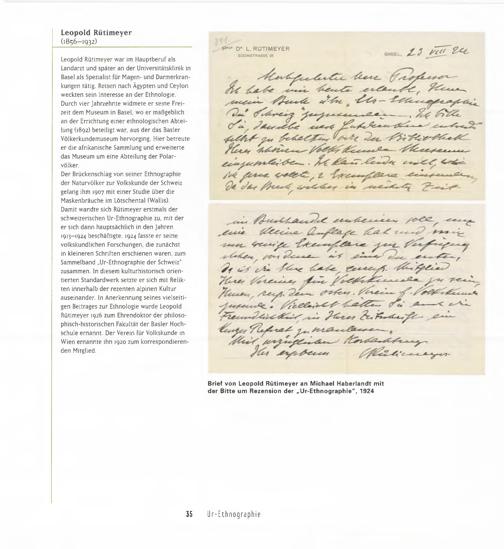 Leopold Rütimeyer
(1856–1932)
Leopold Rütimeyer war im Hauptberuf als
Landarzt und später an der Universitätsklinik in
Basel als Spezialist für Magen- und Darmerkran-
kungen tätig. Reisen nach Ägypten und Ceylon
weckten sein Interesse an der Ethnologie.
Durch vier Jahrzehnte widmete er seine Frei-
zeit dem Museum in Basel, wo er maßgeblich
an der Errichtung einer ethnologischen Samm-
lung (1892) beteiligt war, aus der das Basler
Völkerkundemuseum hervorging. Hier betreute
er die afrikanische Sammlung und erweiterte
das Museum um eine Abteilung der Polar-
völker.
Der Brückenschlag von seiner Ethnographie
der Naturvölker zur Volkskunde der Schweiz
gelang ihm 1907 mit einer Studie über die
Maskenbräuche im Lötschental (Wallis).
Damit wandte sich Rütimeyer erstmals der
schweizerischen Ur-Ethnographie zu, mit der
er sich dann hauptsächlich in den Jahren
1915–1924 beschäftigte. 1924 fasste er seine
volkskundlichen Forschungen, die zunächst
in kleineren Schriften erschienen waren, zum
Sammelband „Ur-Ethnographie der Schweiz"
zusammen. In diesem kulturhistorisch orien-
tierten Standardwerk setzte er sich mit Relik-
ten innerhalb der rezenten alpinen Kultur
auseinander. In Anerkennung seines vielseiti-
gen Beitrages zur Ethnologie wurde Leopold
Rütimeyer 1926 zum Ehrendoktor der philoso-
phisch-historischen Fakultät der Basler Hoch-
schule ernannt. Der Verein für Volkskunde in
Wien ernannte ihn 1920 zum korrespondieren-
den Mitglied.
Prof. Dr L. RÜTIMEYER
BASEL, 23 VIII 24
Herr Professor
Ich habe mir heute erlaubt, Ihnen
mein Buch über Ur-Ethnographie
der Schweiz
Ich bitte
selbst zu behalten oder der Bibliothek
Ihres schönen Volkskunde Museums
einzuverleiben. Ich kann leider nicht, wie
ich gerne wollte, 2 Exemplare einsenden,
da das Buch, welches in nächster Zeit
im Buchhandel erscheinen soll, nur
eine kleine Auflage hat und mir
nur wenige Exemplare zur Verfügung
stehen, von denen
Ihres Vereines für Volkskunde zu sein
Vielleicht hätten Sie auch die
Freundlichkeit, in Ihrer Zeitschrift ein
kurzes Referat zu veranlassen.
Mit vorzüglicher Hochachtung
Ihr ergebener Rütimeyer
Brief von Leopold Rütimeyer an Michael Haberlandt mit
der Bitte um Rezension der „Ur-Ethnographie", 1924
35 Ur-Ethnographie